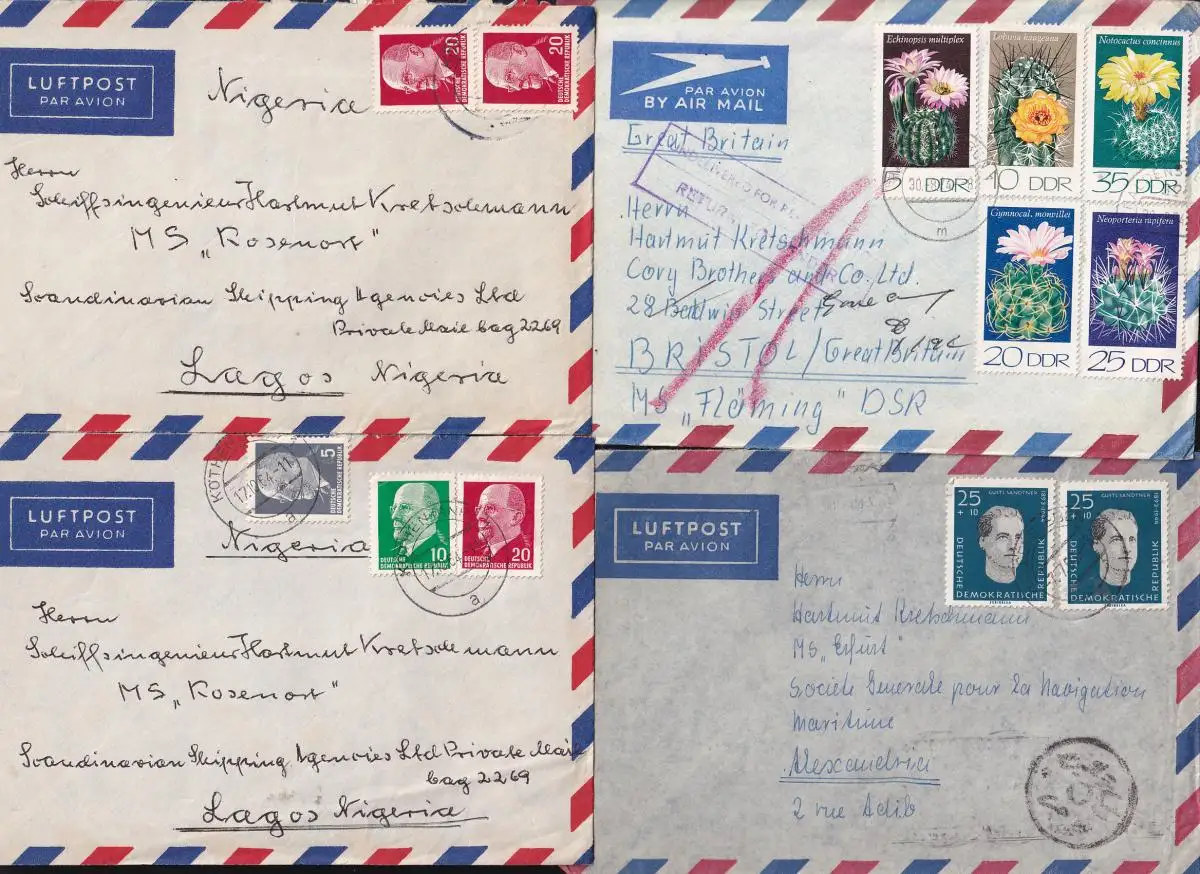 LUFTPOST
PAR AVION
Nigeria
20
DEUTSCHE
DEMOKRATISCHE REPUBLIK
20
DEUTSCHE
DEMOKRATISCHE REPUBLIK
Herrn
Schiffsingenieur Hartmut Kretschmann
MS „Rosenort"
Scandinavian Shipping Agencies Ltd
Private Mail bag 2269
Lagos Nigeria
PAR AVION
BY AIR MAIL
Echinopsis multiplex
5 DDR
Lobivia haageana
10 DDR
Notocactus concinnus
35 DDR
Gymnocal. monvillei
20 DDR
Neoporteria rapifera
25 DDR
Great Britain
UNDELIVERED FOR
RETURN
30.
m
Herrn
Hartmut Kretschmann
Cory Brothers and Co. Ltd.
28 Baldwin Street
BRISTOL / Great Britain
MS „Fläming" DSR
LUFTPOST
PAR AVION
KÖTHEN
17.10.64-11
a
5
DEUTSCHE
DEMOKRATISCHE REPUBLIK
10
DEUTSCHE
DEMOKRATISCHE REPUBLIK
20
DEUTSCHE
DEMOKRATISCHE REPUBLIK
a
Nigeria
Herrn
Schiffsingenieur Hartmut Kretschmann
MS „Rosenort"
Scandinavian Shipping Agencies Ltd Private Mail
bag 2269
Lagos Nigeria
LUFTPOST
PAR AVION
25
+ 10
GUSTL SANDTNER
1893-1944
DEUTSCHE
DEMOKRATISCHE
REPUBLIK
25
+ 10
GUSTL SANDTNER
1893-1944
DEUTSCHE
DEMOKRATISCHE
REPUBLIK
Herrn
Hartmut Kretschmann
MS „Erfurt"
Societe Generale pour la Navigation
Maritime
Alexandria
2 rue Adib